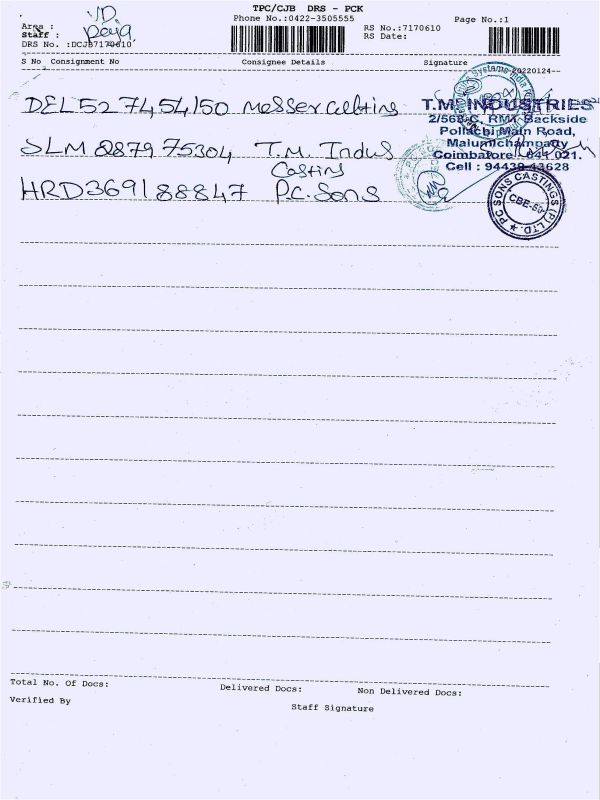 TPC/CJB DRS - PCK
Phone No.:0422-3505555
Page No.:1
Area : VD
Staff : Raja
RS No.:7170610
RS Date:
DRS No. :DCJB7170610
20220124
S No Consignment No Consignee Details Signature
DEL527454150 Messer Cutting
SLM287975304 T.M. Indus
Casting
HRD369188847 P.C. Sons
T.M. INDUSTRIES
2/568-C, RMT Backside
Pollachi Main Road,
Malumichampatty
Coimbatore - 641 021.
Cell : 94439 43628
PC SONS CASTINGS (P) LTD.
CBE-50
Total No. Of Docs: Delivered Docs: Non Delivered Docs:
Verified By Staff Signature